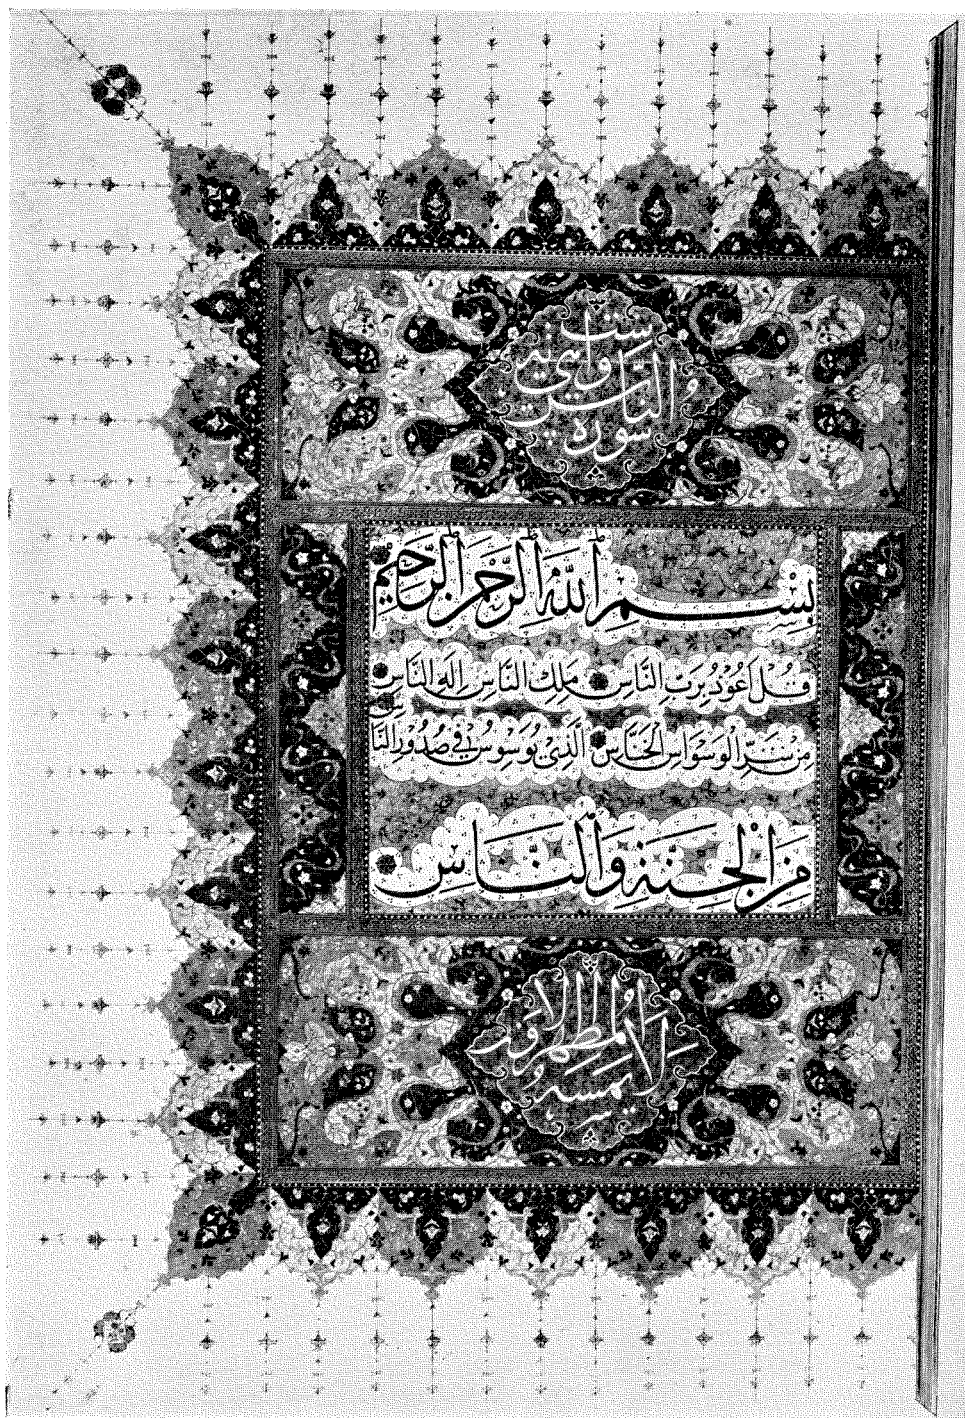 سوره الناس
ست
بِسْمِ اللَّهِ الرَّحْمَنِ الرَّحِيمِ
قُلْ اَعُوْذُ بِرَبِّ النَّاسِ مَلِكِ النَّاسِ اِلَهِ النَّاسِ
مِنْ شَرِّ الْوَسْوَاسِ الْخَنَّاسِ الَّذِيْ يُوَسْوِسُ فِيْ صُدُوْرِ النَّاسِ
مِنَ الْجِنَّةِ وَالنَّاسِ
لا يمسه الا المطهرون